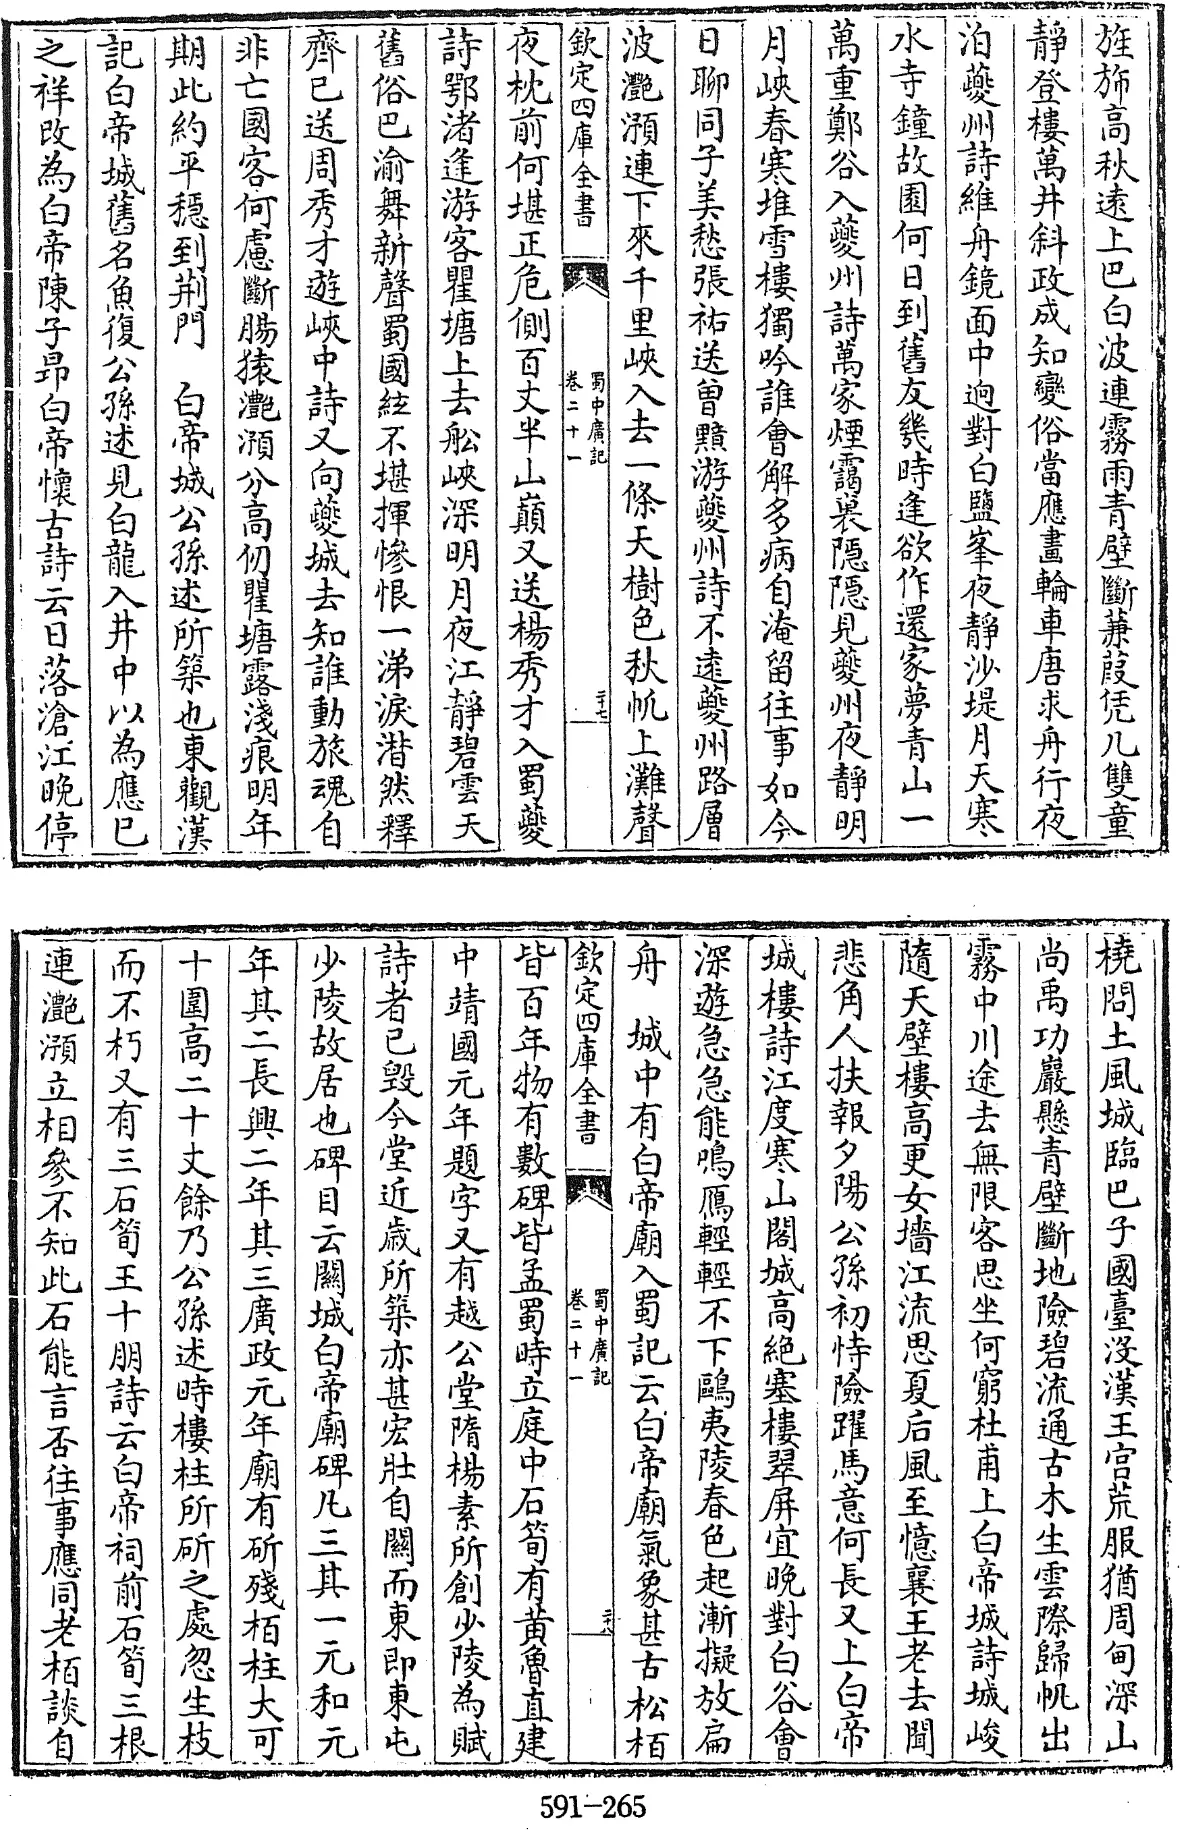 旌斾高秋遠上巴白波連霧雨青壁斷蒹葭凭几雙童
靜登樓萬井斜政成知變俗當應畫輪車唐求舟行夜
泊夔州詩維舟鏡面中逈對白鹽峯夜靜沙堤月天寒
水寺鐘故園何日到舊友幾時逢欲作還家夢青山一
萬重鄭谷入夔州詩萬家煙靄裏隠隠見夔州夜靜明
月峽春寒堆雪樓獨吟誰會解多病自淹留往事如今
日聊同子美愁張祐送曾黯游夔州詩不逺夔州路層
波灔澦連下來千里峽入去一條天樹色秋帆上灘聲
欽定四庫全書
蜀中廣記
卷二十一
二十七
夜枕前何堪正危側百丈半山巔又送楊秀才入蜀夔
詩鄂渚逢游客瞿塘上去舩峽深明月夜江靜碧雲天
舊俗巴渝舞新聲蜀國絃不堪揮慘恨一涕淚潸然釋
齊已送周秀才遊峽中詩又向夔城去知誰動旅魂自
非亡國客何慮斷腸猿灔澦分高仞瞿塘露淺痕明年
期此約平穩到荆門　白帝城公孫述所築也東觀漢
記白帝城舊名魚復公孫述見白龍入井中以為應已
之祥改為白帝陳子昻白帝懷古詩云日落滄江晚停
橈問土風城臨巴子國臺沒漢王宫荒服猶周甸深山
尚禹功巖懸青壁斷地險碧流通古木生雲際歸帆出
霧中川途去無限客思坐何窮杜甫上白帝城詩城峻
隨天壁樓高更女墻江流思夏后風至憶襄王老去聞
悲角人扶報夕陽公孫初恃險躍馬意何長又上白帝
城樓詩江度寒山閣城高絶塞樓翠屏宜晚對白谷會
深遊急急能鳴鴈輕輕不下鷗夷陵春色起漸擬放扁
舟　城中有白帝廟入蜀記云白帝廟氣象甚古松栢
欽定四庫全書
蜀中廣記
卷二十一
二十八
皆百年物有數碑皆孟蜀時立庭中石筍有黄魯直建
中靖國元年題字又有越公堂隋楊素所創少陵為賦
詩者已毁今堂近歲所築亦甚宏壯自關而東即東屯
少陵故居也碑目云關城白帝廟碑凡三其一元和元
年其二長興二年其三廣政元年廟有斫殘栢柱大可
十圍高二十丈餘乃公孫述時樓柱所斫之處忽生枝
而不朽又有三石筍王十朋詩云白帝祠前石筍三根
連灔澦立相參不知此石能言否往事應同老栢談自
591-265